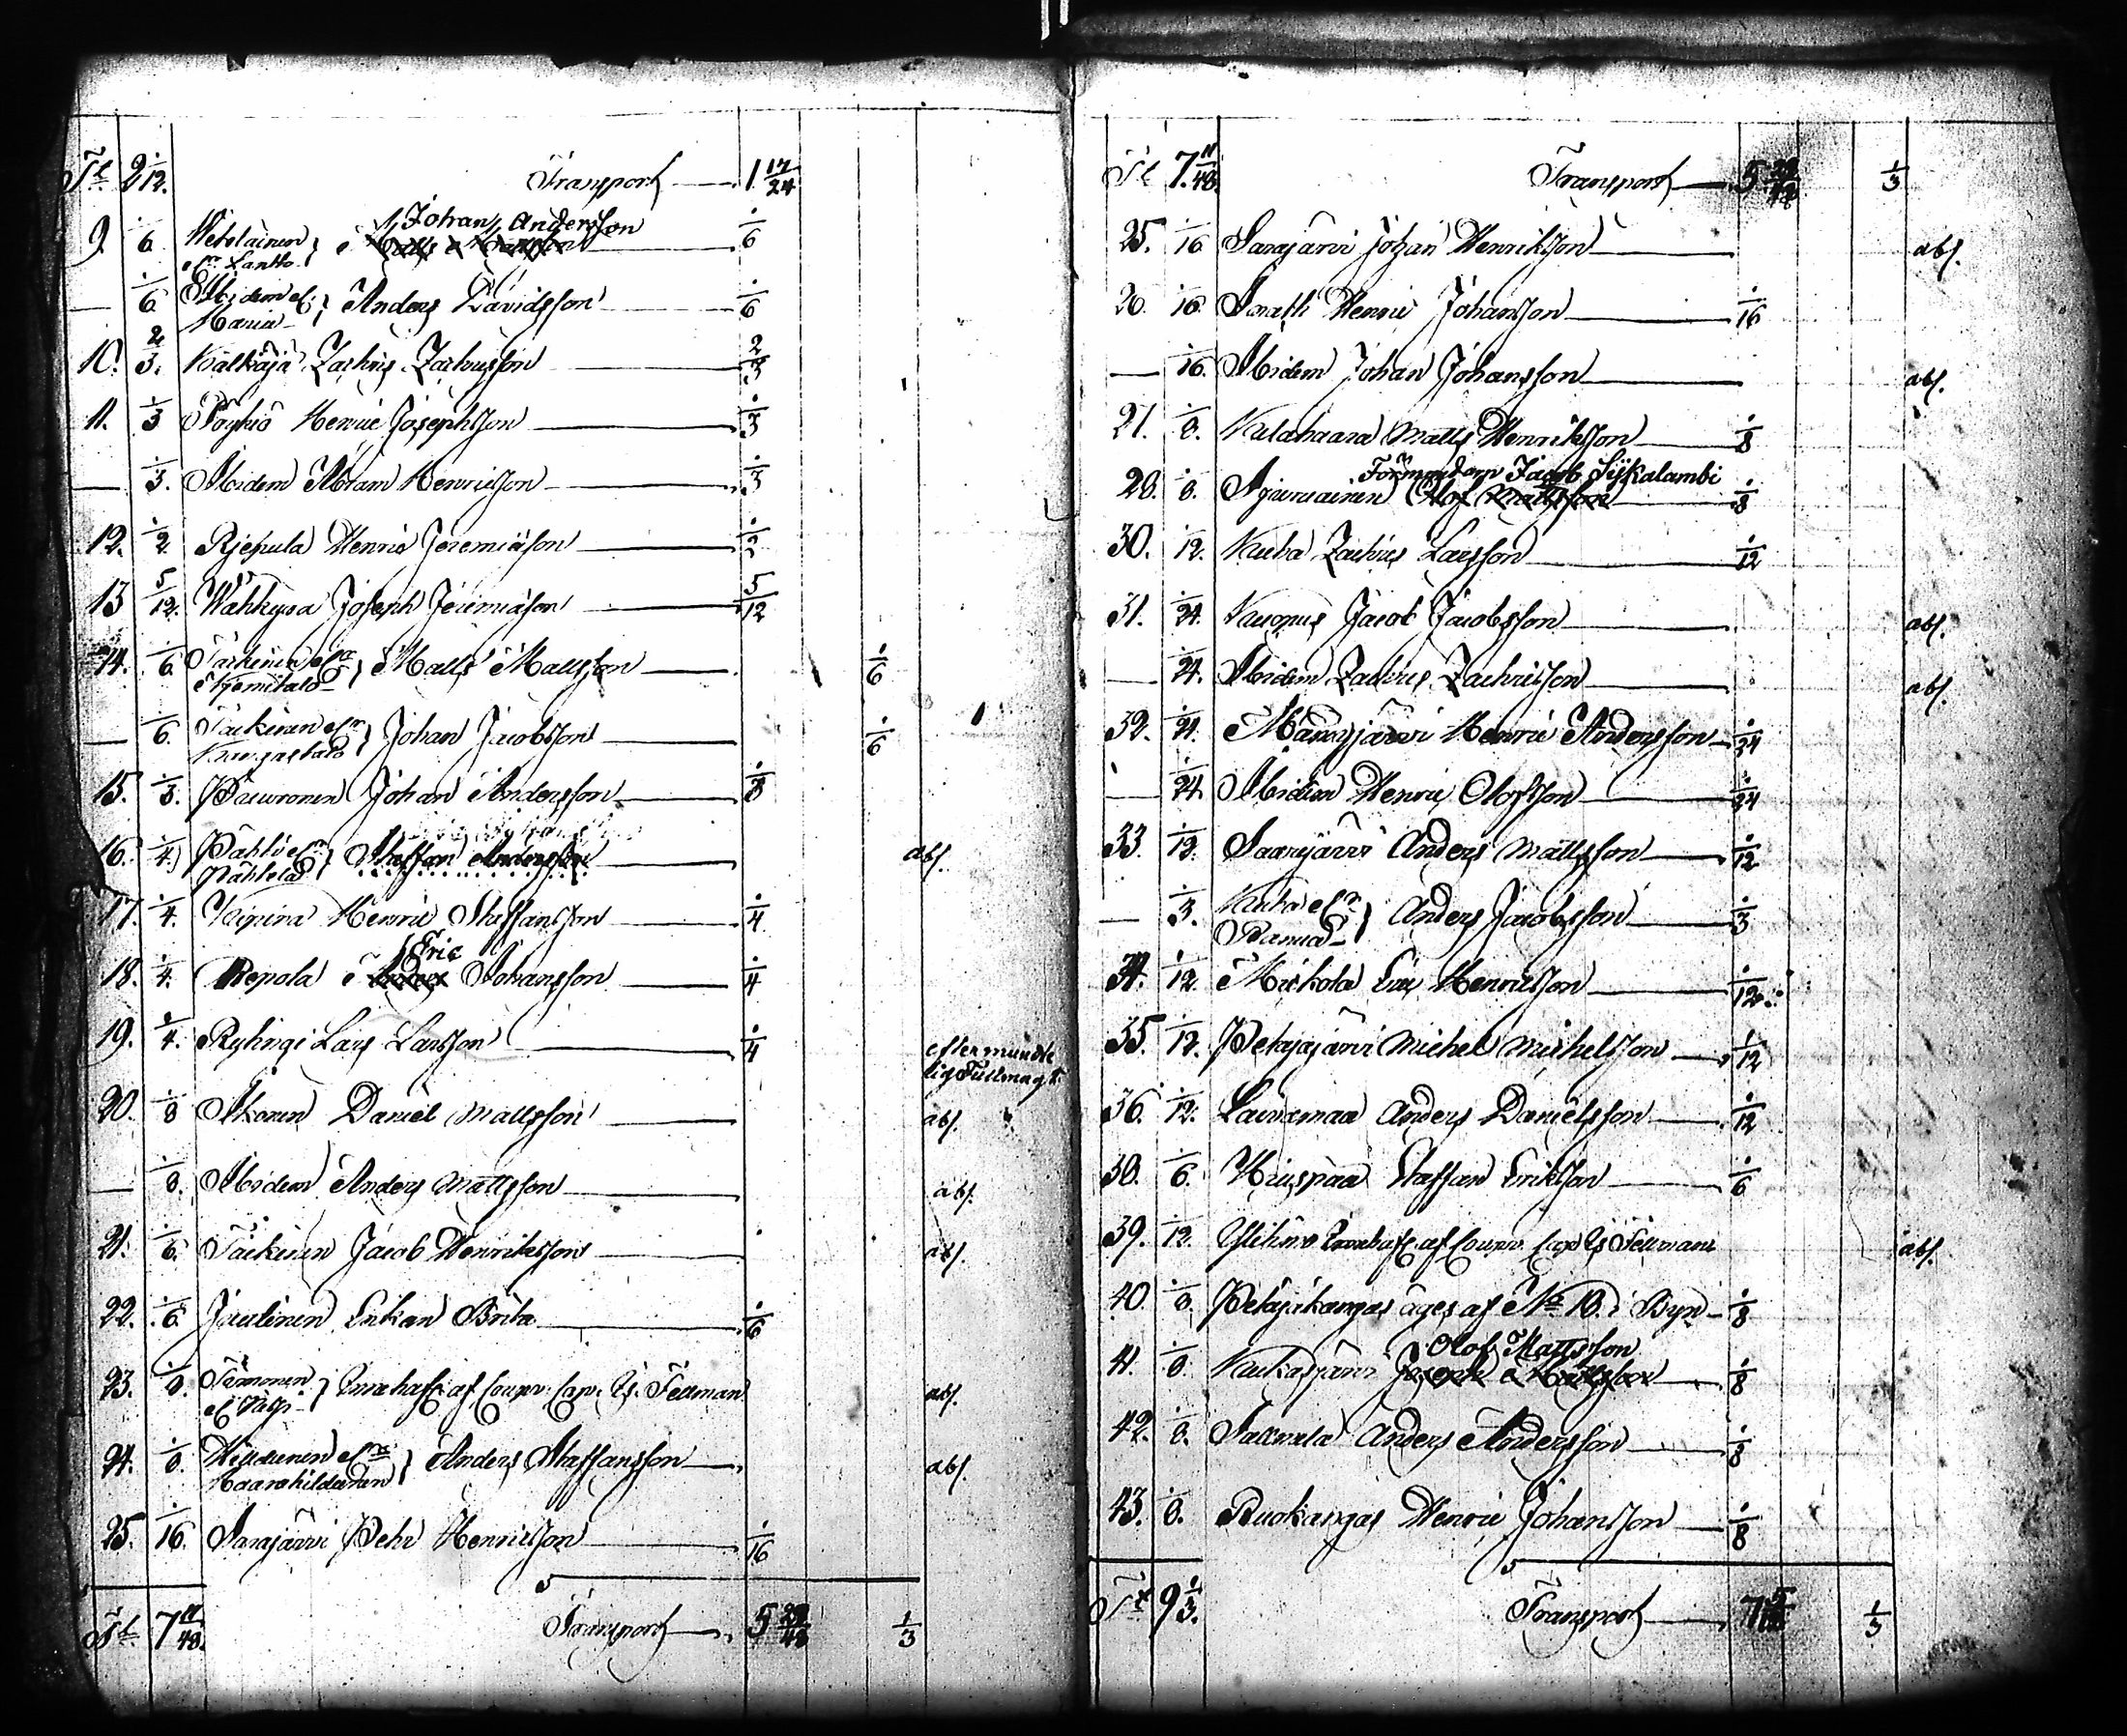 Tl. 2 1/12. Transport 1. 17/24
9. 1/6 Wetelainen elr. Lantto } Johan Andersson 1/6
— 1/6 Ibidem el. Maria } Anders Davidsson 1/6
10. 2/3. Kalkaja Zachris Zachrisson 2/3
11. 1/3 Pöykiö Henric Josephsson 1/3
— 1/3. Ibidem Abram Henricsson 1/3
12. 1/2 Henric Jeremiæson 1/2
13 5/12. Joseph Jeremiæson 5/12
14. 1/6 Tackinen elr. Niemitalo } Matts Mattsson 1/6
— 1/6. Tackinen elr. Kangastalo } Johan Jacobsson 1/6
15. 1/8. Paiwronen Johan Andersson 1/8
16. 1/4. Pahti elr. Pahtila } Staffan Andersson abs.
17. 1/4. Kipina Henric Staffansson 1/4
18. 1/4. Repola Eric Johansson 1/4
19. 1/4. Ryhingi Lars Larsson 1/4
efter mundtlig Fullmagt.
20. 1/8 Ikonen Daniel Mattsson abs.
— 1/8. Ibidem Anders Mattsson abs.
21. 1/6. Tackinen Jacob Henricksson abs.
22. 1/6. Juutinen Enkan Brita 1/6
23. 1/8. } af Fellman abs.
24. 1/8. } Anders Staffansson abs.
25. 1/16. Sarajärvi Pehr Henricsson 1/16
Tl. 7 11/48. Transport 5 29/48 1/3
Tl 7. 11/48. Transport 5 29/48 1/3
25. 1/16 Sarajärvi Johan Henricksson abs.
26. 1/16. Henric Johansson 1/16
— 1/16. Ibidem Johan Johansson abs.
27. 1/8. Kalahaara Matts Henricksson 1/8
28. 1/8. Olof Mattsson Förmyndarn Jacob Siykalambi 1/8
30. 1/12. Kuha Zachris Larsson 1/12
31. 1/24. Kuopus Jacob Jacobsson abs.
— 1/24. Ibidem Zachris Zachrisson abs.
32. 1/24. Henric Andersson 1/24
— 1/24. Ibidem Henric Olofsson 1/24
33. 1/12. Saarijärvi Anders Mattsson 1/12
— 1/3. Kuha elr. } Anders Jacobsson 1/3
34. 1/12. Mickola Eric Henricsson 1/12
35. 1/12. Petäjäjärvi Michel Michelsson 1/12
36. 1/12. Lauramaa Anders Danielsson 1/12
38. 1/6. Hiuspää Staffan Ericksson 1/6
39. 1/12. af Fellman abs.
40. 1/8. Petäjäkangas äges af No 18. i Byn 1/8
41. 1/8. Kaukasjärvi Olof Mattsson 1/8
42. 1/8. Anders Andersson 1/8
43. 1/8. Ruokangas Henric Johansson 1/8
Tl. 9 1/3. Transport 1/3